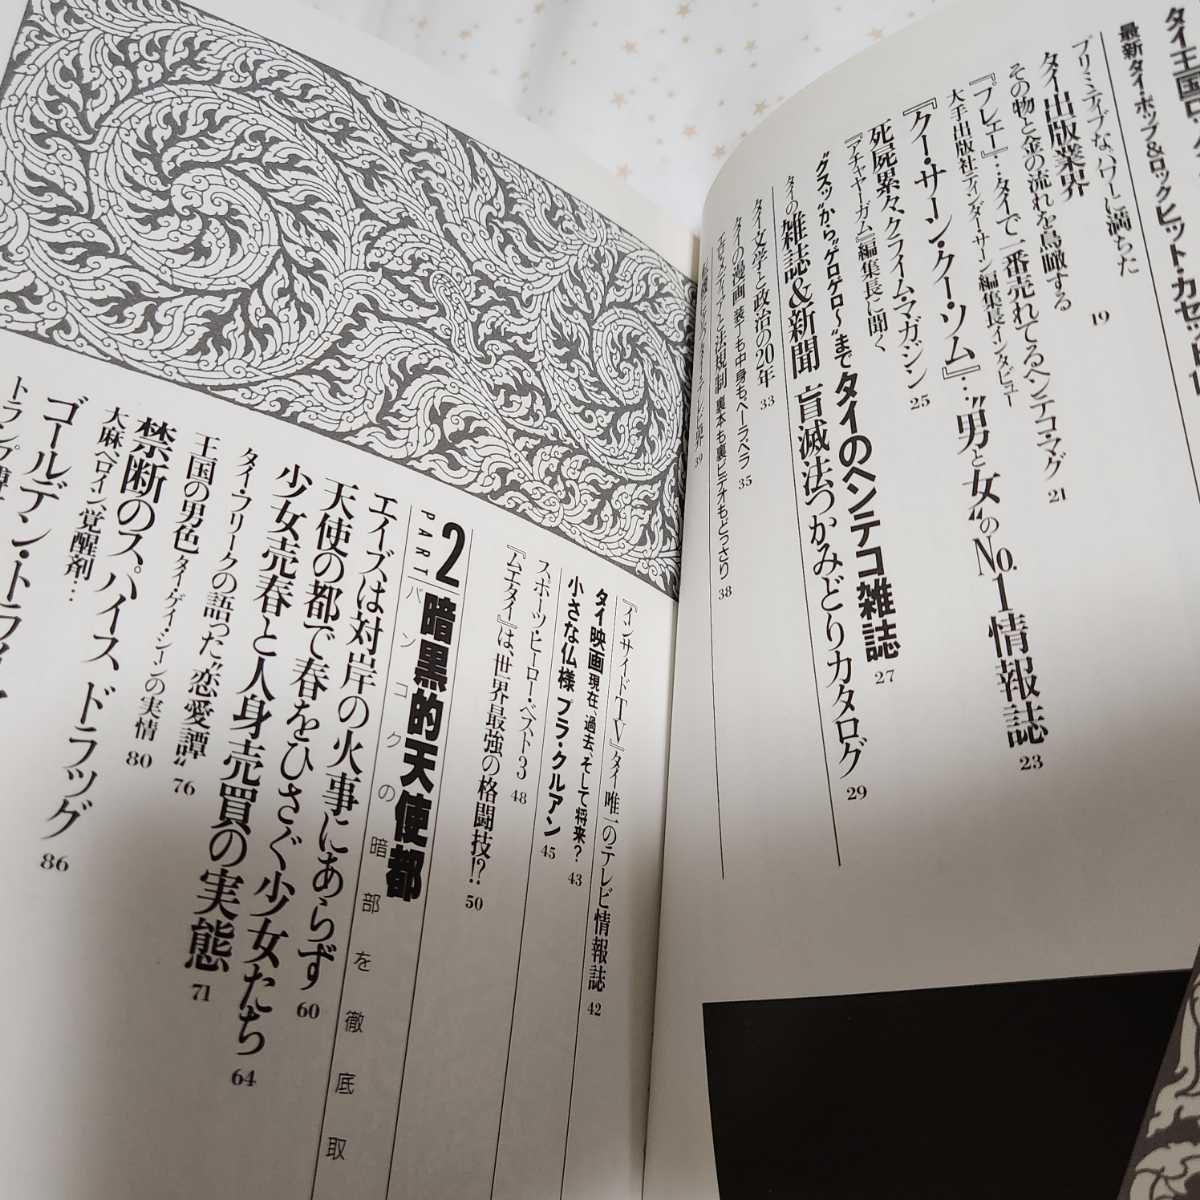 最新タイ・ポップ&ロックヒット・カセット
プリミティブなパワーに満ちた
19
タイ出版業界
その物と金の流れを鳥瞰する
21
『プレェー』…タイで一番売れてるヘンテコ・マグ
大手出版社ディンダー・サーン編集長インタビュー
『クー・サーン・クー・ソム』…“男と女”のNo.1情報誌
23
死屍累々クライム・マガジン
25
『アチャヤーガム』編集長に聞く
“グスッ”から“ゲロゲロ〜”まで タイのヘンテコ雑誌
27
タイの雑誌&新聞 盲滅法つかみどりカタログ
29
タイ文学と政治の20年
33
タイの漫画 装丁も中身もペーラペラ
35
裏本も裏ビデオもどっさり
38
39
『インサイドTV』タイ唯一のテレビ情報誌
42
タイ映画 現在、過去、そして将来?
43
小さな仏様 プラ・クルアン
45
スポーツヒーロー・ベスト3
48
『ムエタイ』は、世界最強の格闘技!?
50
PART 2 暗黒的天使都
バンコクの暗部を徹底取
エイズは対岸の火事にあらず
60
天使の都で春をひさぐ少女たち
64
少女売春と人身売買の実態
71
タイ・フリークの語った“恋愛譚”
76
王国の男色 タイ・ゲイ・シーンの実情
80
禁断のスパイス、ドラッグ
86
大麻、ヘロイン、覚醒剤…